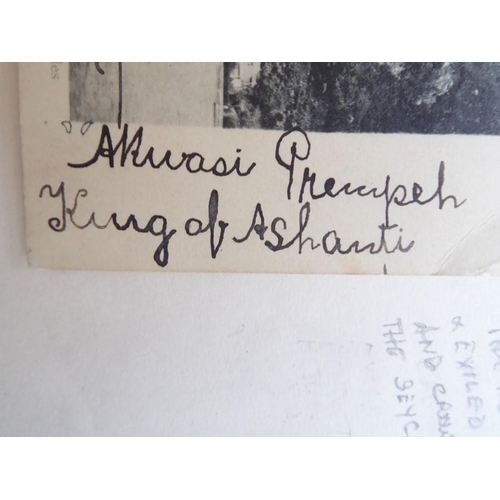 Akwasi Prempeh
King of Ashanti
& EXILED
AND
THE SEYC